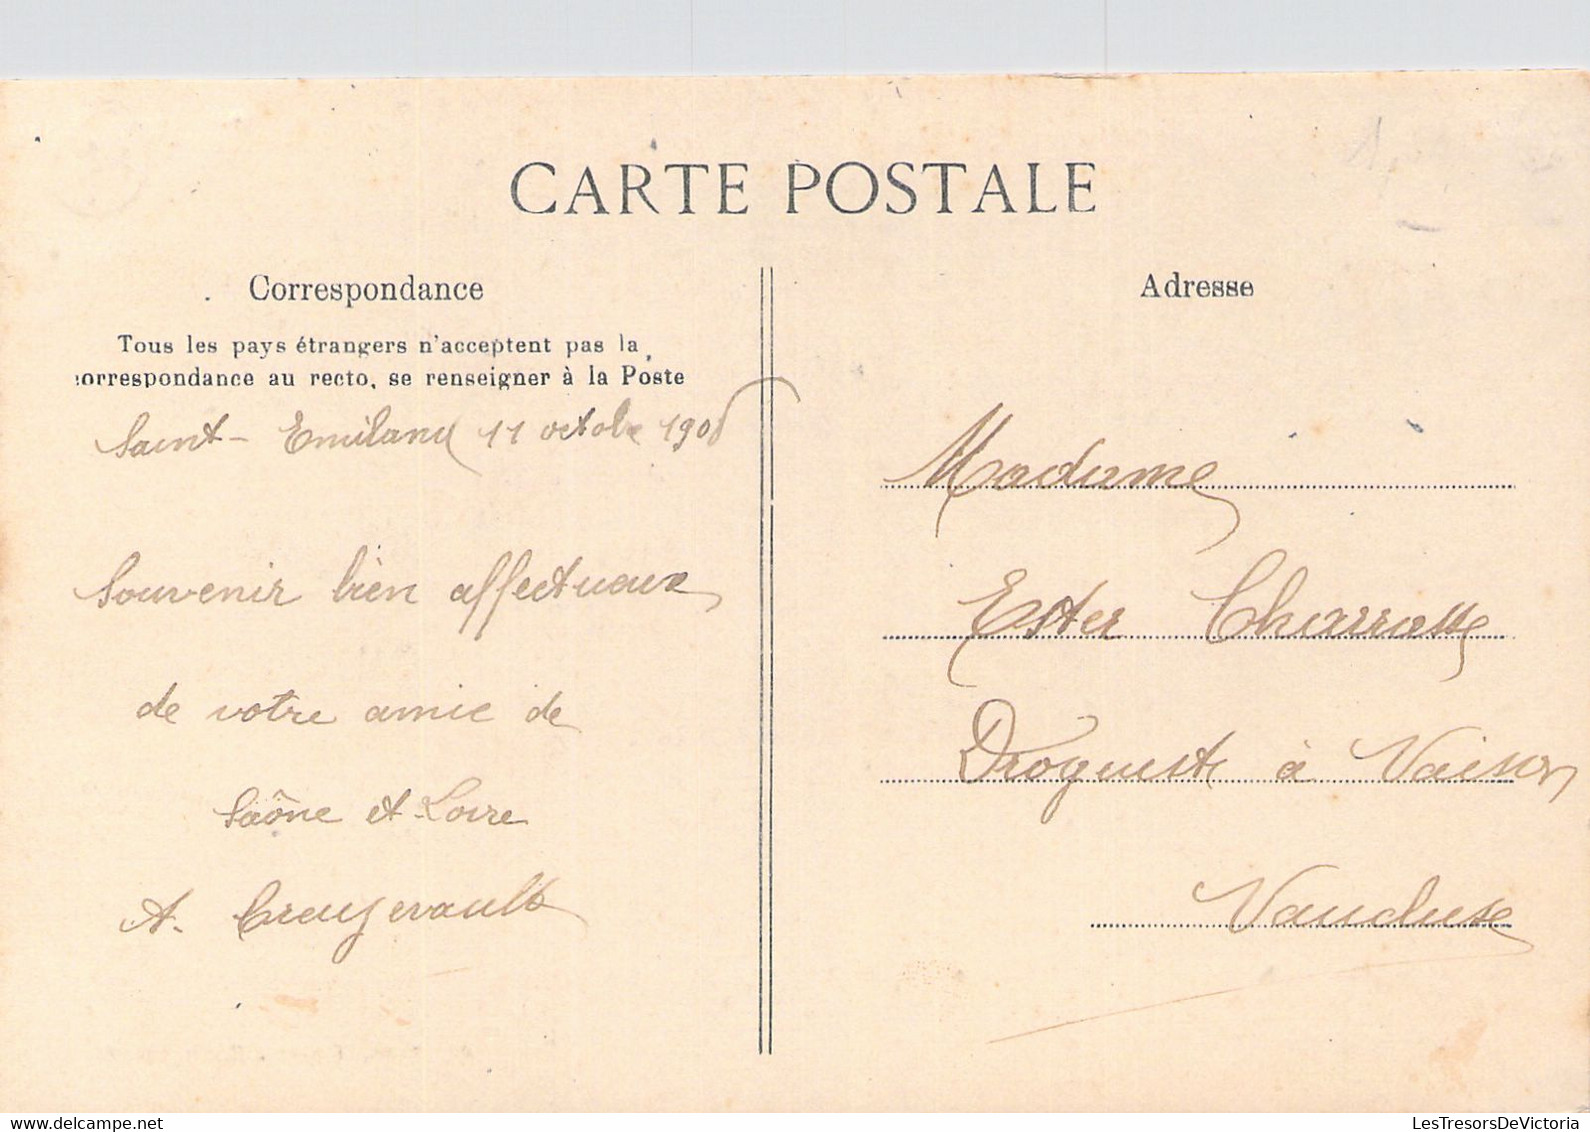 CARTE POSTALE
Correspondance
Tous les pays étrangers n'acceptent pas la
correspondance au recto, se renseigner à la Poste
Saint-Emiland 11 octobre 1908
Souvenir bien affectueux
de votre amie de
Saône et Loire
A. Creuzevault
Adresse
Madame
Ester Charrasse
Droguiste à Vaison
Vaucluse
LesTresorsDeVictoria